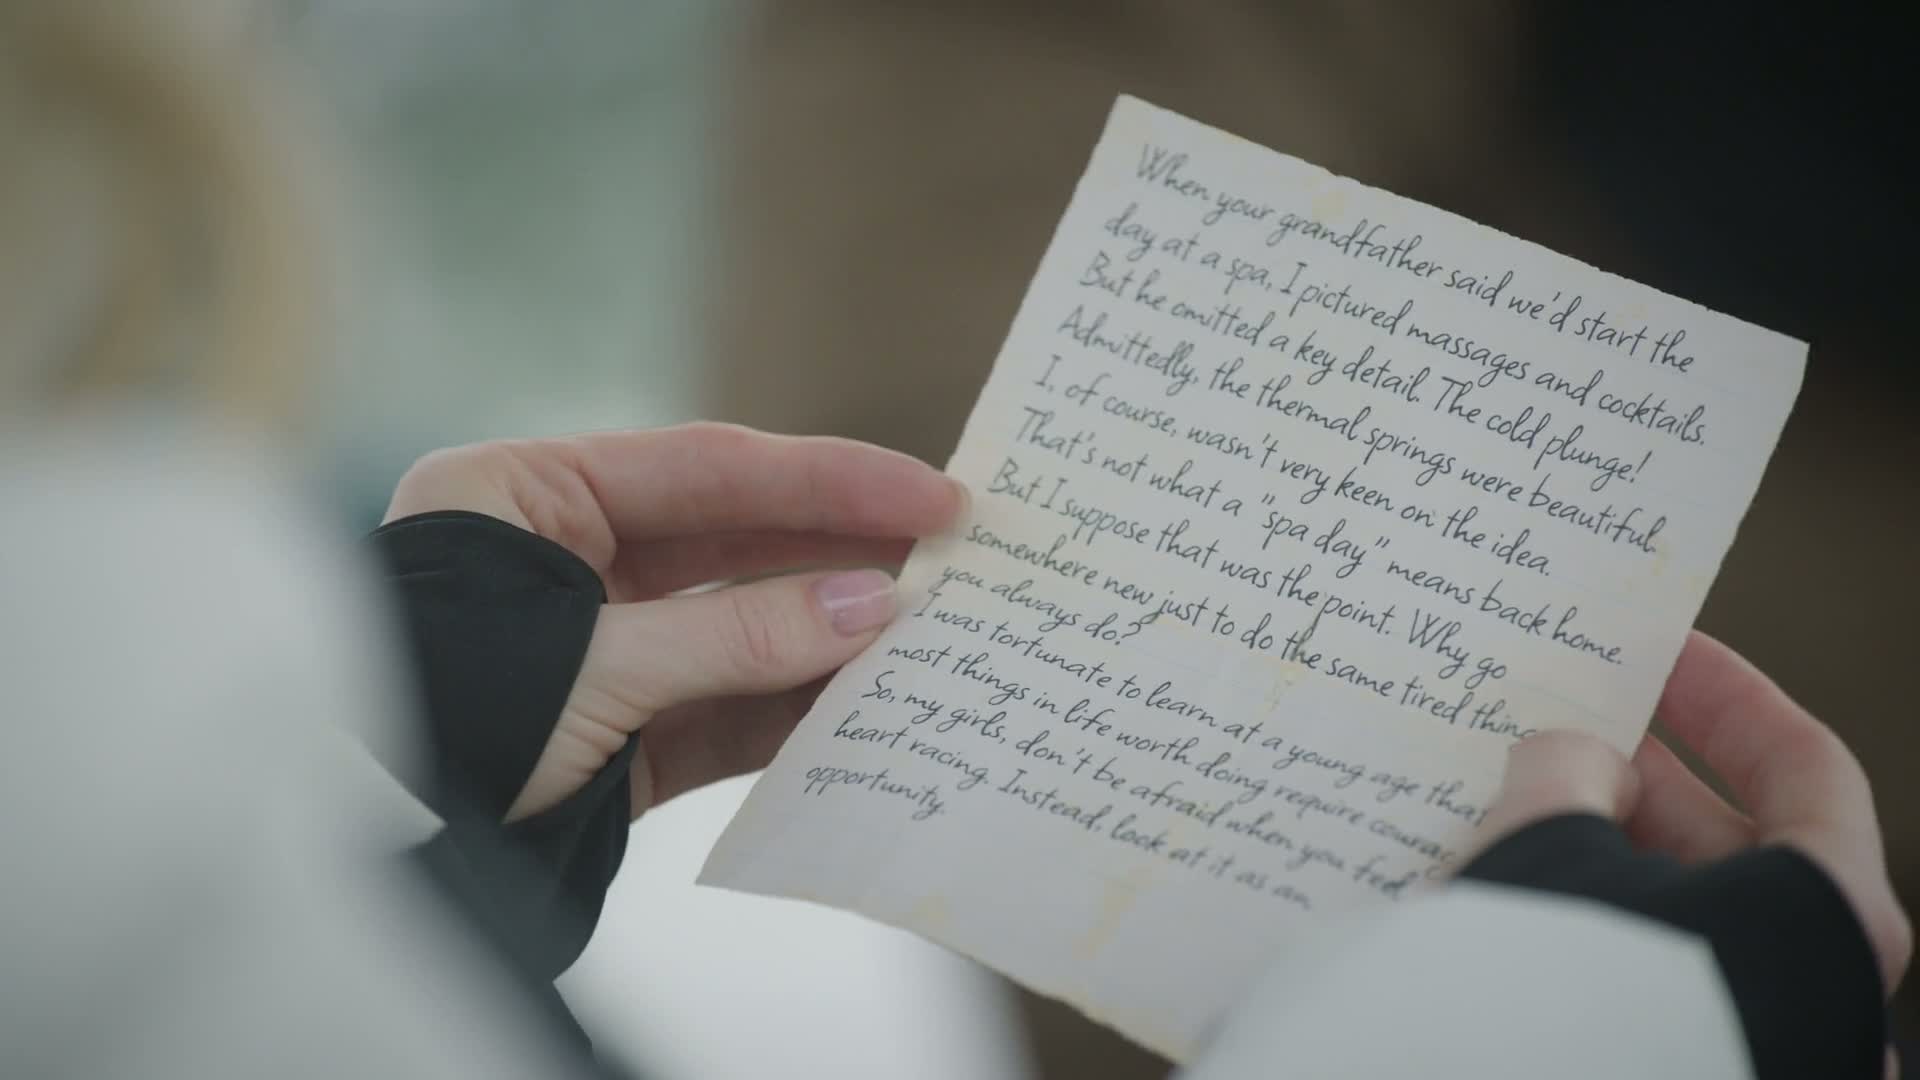 When your grandfather said we'd start the
day at a spa, I pictured massages and cocktails.
But he omitted a key detail. The cold plunge!
Admittedly, the thermal springs were beautiful.
I, of course, wasn't very keen on the idea.
That's not what a "spa day" means back home.
But I suppose that was the point. Why go
somewhere new just to do the same tired thing
you always do?
I was fortunate to learn at a young age that
most things in life worth doing require courag
So, my girls, don't be afraid when you feel
heart racing. Instead, look at it as an
opportunity.